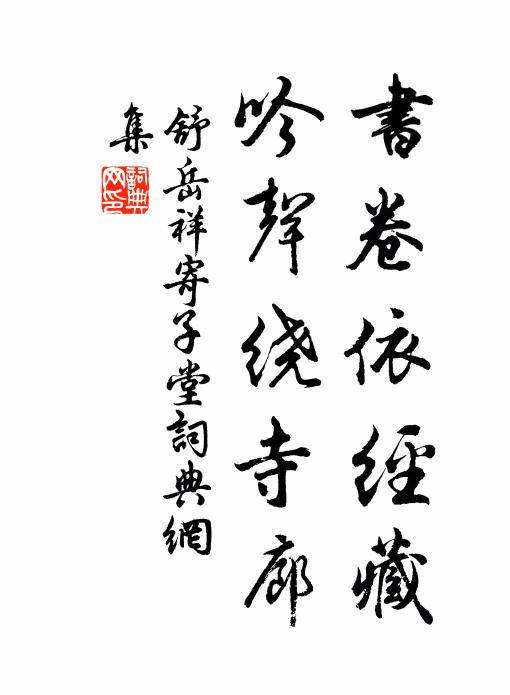 書卷依經藏
吟聲绕寺廊
舒岳祥寄子堂詞典網
集
詞典
网印